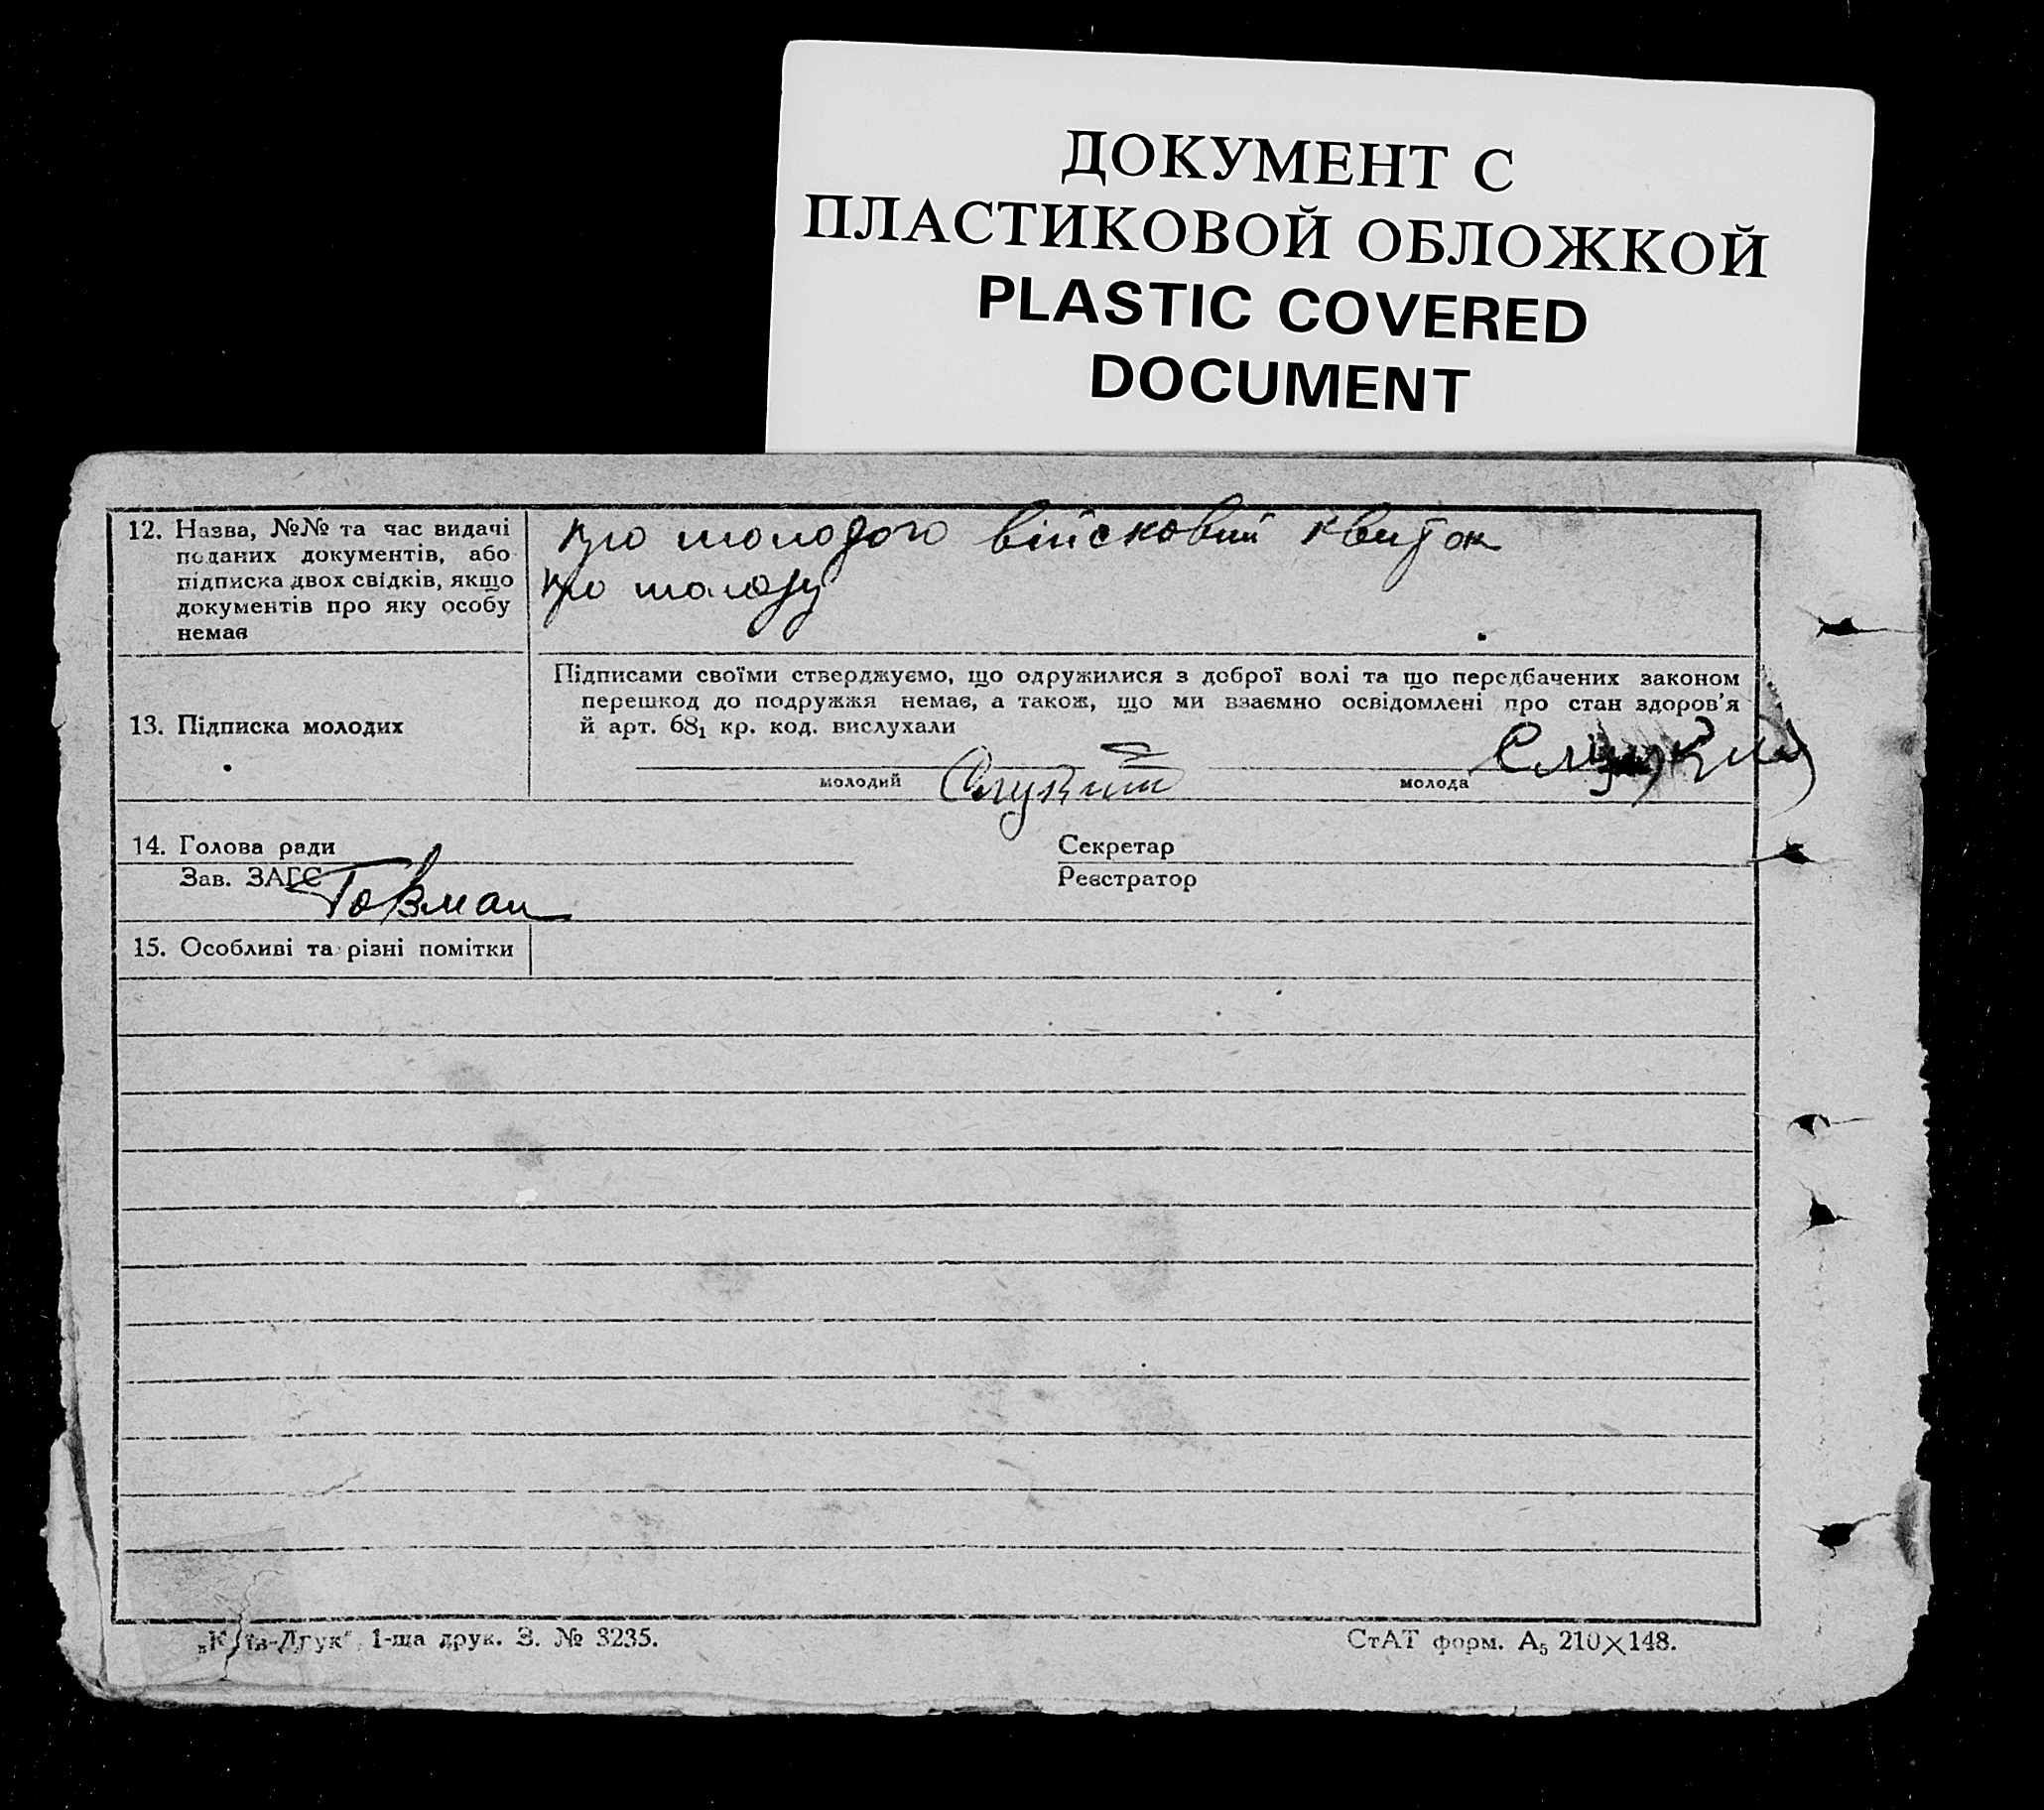 ДОКУМЕНТ С
ПЛАСТИКОВОЙ ОБЛОЖКОЙ
PLASTIC COVERED
DOCUMENT
12. Назва, №№ та час видачі
поданих документів, або
підписка двох свідків, якщо
документів про яку особу
немає
про молодого військовий квиток
про молоду
13. Підписка молодих
Підписами своїми стверджуємо, що одружилися з доброї волі та що передбачених законом
перешкод до подружжя немає, а також, що ми взаємно освідомлені про стан здоров'я
й арт. 68₁ кр. код. вислухали
молодий
молода
14. Голова ради
Секретар
Зав. ЗАГС
Реєстратор
15. Особливі та різні помітки
„Київ-Друк“, 1-ша друк. З. № 3235.
СтАТ форм. А₅ 210×148.